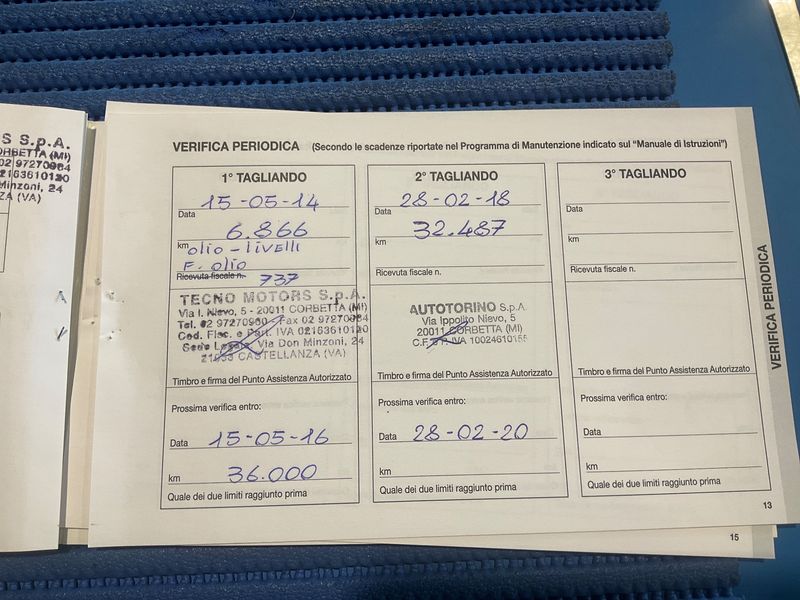 S S.p.A.
ORBETTA (MI)
02 97270984
2163610120
Minzoni, 24
ZA (VA)
VERIFICA PERIODICA (Secondo le scadenze riportate nel Programma di Manutenzione indicato sul "Manuale di Istruzioni")
1° TAGLIANDO
15-05-14
Data
6.866
km
olio-livelli
F. olio
Ricevuta fiscale n. 737
TECNO MOTORS S.p.A.
Via I. Nievo, 5 - 20011 CORBETTA (MI)
Tel. 02 97270960 Fax 02 97270984
Cod. Fisc. e Part. IVA 02163610120
Sede Legale: Via Don Minzoni, 24
21053 CASTELLANZA (VA)
Timbro e firma del Punto Assistenza Autorizzato
Prossima verifica entro:
Data 15-05-16
km 36.000
Quale dei due limiti raggiunto prima
2° TAGLIANDO
28-02-18
Data
32.487
km
Ricevuta fiscale n.
AUTOTORINO S.p.A.
Via Ippolito Nievo, 5
20011 CORBETTA (MI)
C.F. e P. IVA 10024610155
Timbro e firma del Punto Assistenza Autorizzato
Prossima verifica entro:
Data 28-02-20
km
Quale dei due limiti raggiunto prima
3° TAGLIANDO
Data
km
Ricevuta fiscale n.
Timbro e firma del Punto Assistenza Autorizzato
Prossima verifica entro:
Data
km
Quale dei due limiti raggiunto prima
VERIFICA PERIODICA
13
15